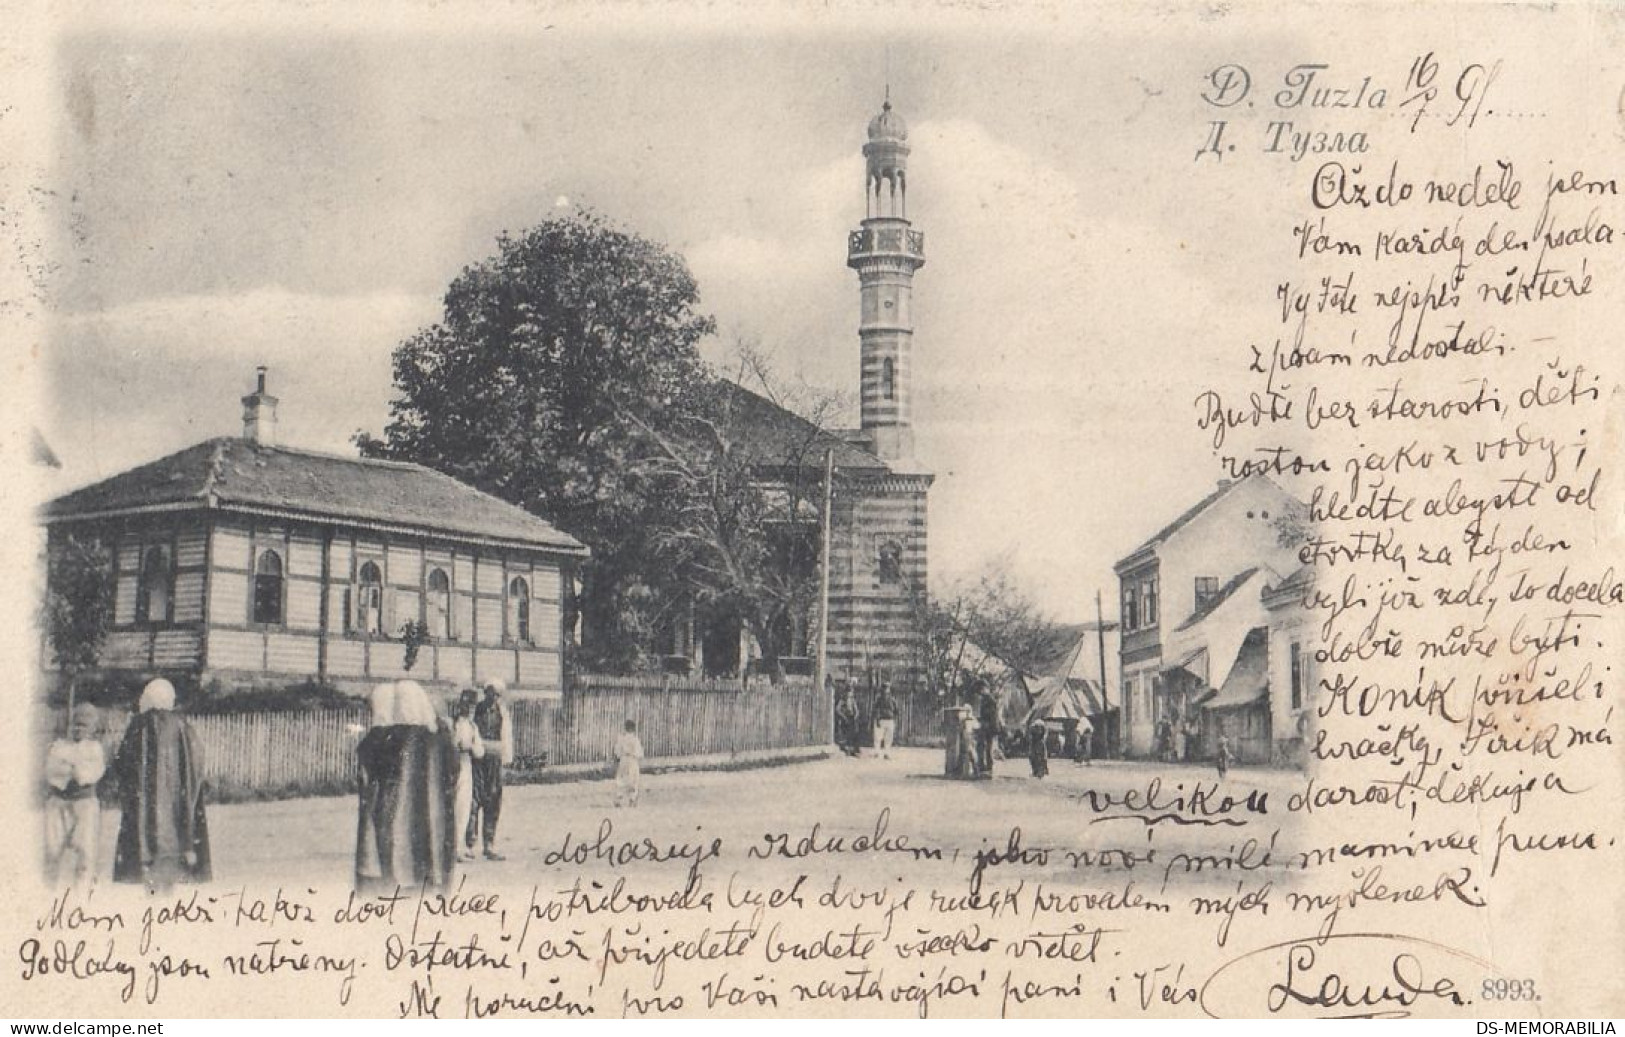 D. Tuzla 16/7 91.
Д. Тузла
Až do neděle jsem
Vám každý den psala.
Vy jste nejspíš některé
z psaní nedostali. –
Buďte bez starosti, děti
rostou jako z vody;
hleďte abyste od
čtvrtka za týden
byli již zde, to docela
dobře může býti.
Koník přišel i
hračky, Jiřík má
velikou darost; děkuje a
dohazuje vzduchem, jako nové milé mamince pusu.
Mám jakž takž dost práce, potřebovala bych dvoje ruce k provádění mých myšlenek.
Podlahy jsou natřeny. Ostatně, až přijedete budete všecko vidět.
Mé poručení pro Vaši nastávající paní i Vás
Lauda.
8993.
DELCAMPE.NET
DS-MEMORABILIA